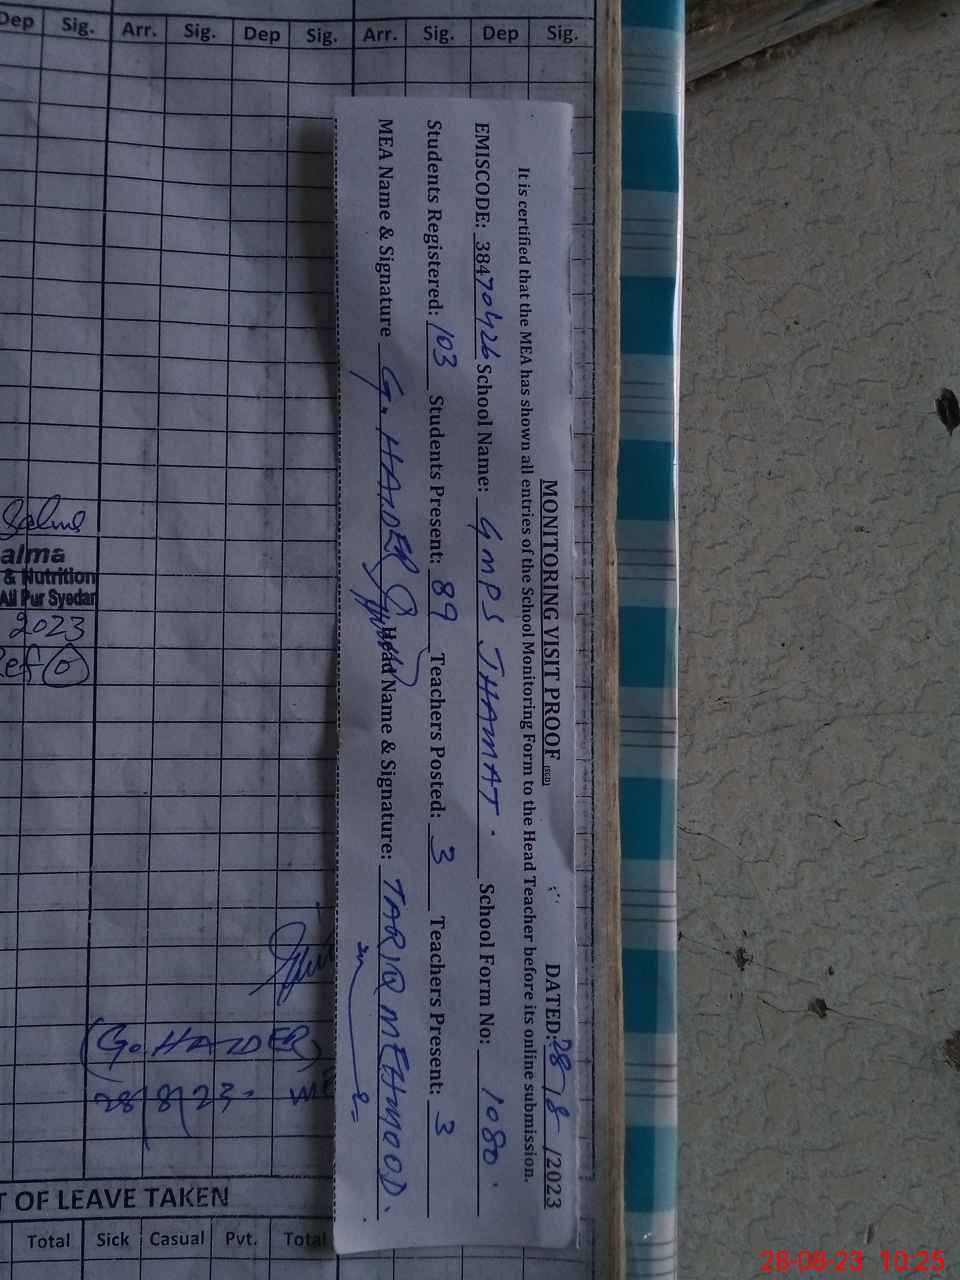 Dep Sig. Arr. Sig. Dep Sig. Arr. Sig. Dep Sig.
MONITORING VISIT PROOF (SGD) DATED: 28/8/2023
It is certified that the MEA has shown all entries of the School Monitoring Form to the Head Teacher before its online submission.
EMISCODE: 38470426 School Name: GMPS JHAMAT. School Form No: 1080.
Students Registered: 103 Students Present: 89 Teachers Posted: 3 Teachers Present: 3
MEA Name & Signature G. HAIDER Head Name & Signature: TARIQ MEHMOOD.
Salma
alma
& Nutrition
Ali Pur Syedan
2023
Ref 0
(G. HAIDER)
28/8/23
T OF LEAVE TAKEN
Total Sick Casual Pvt. Total
28-08-23 10:25